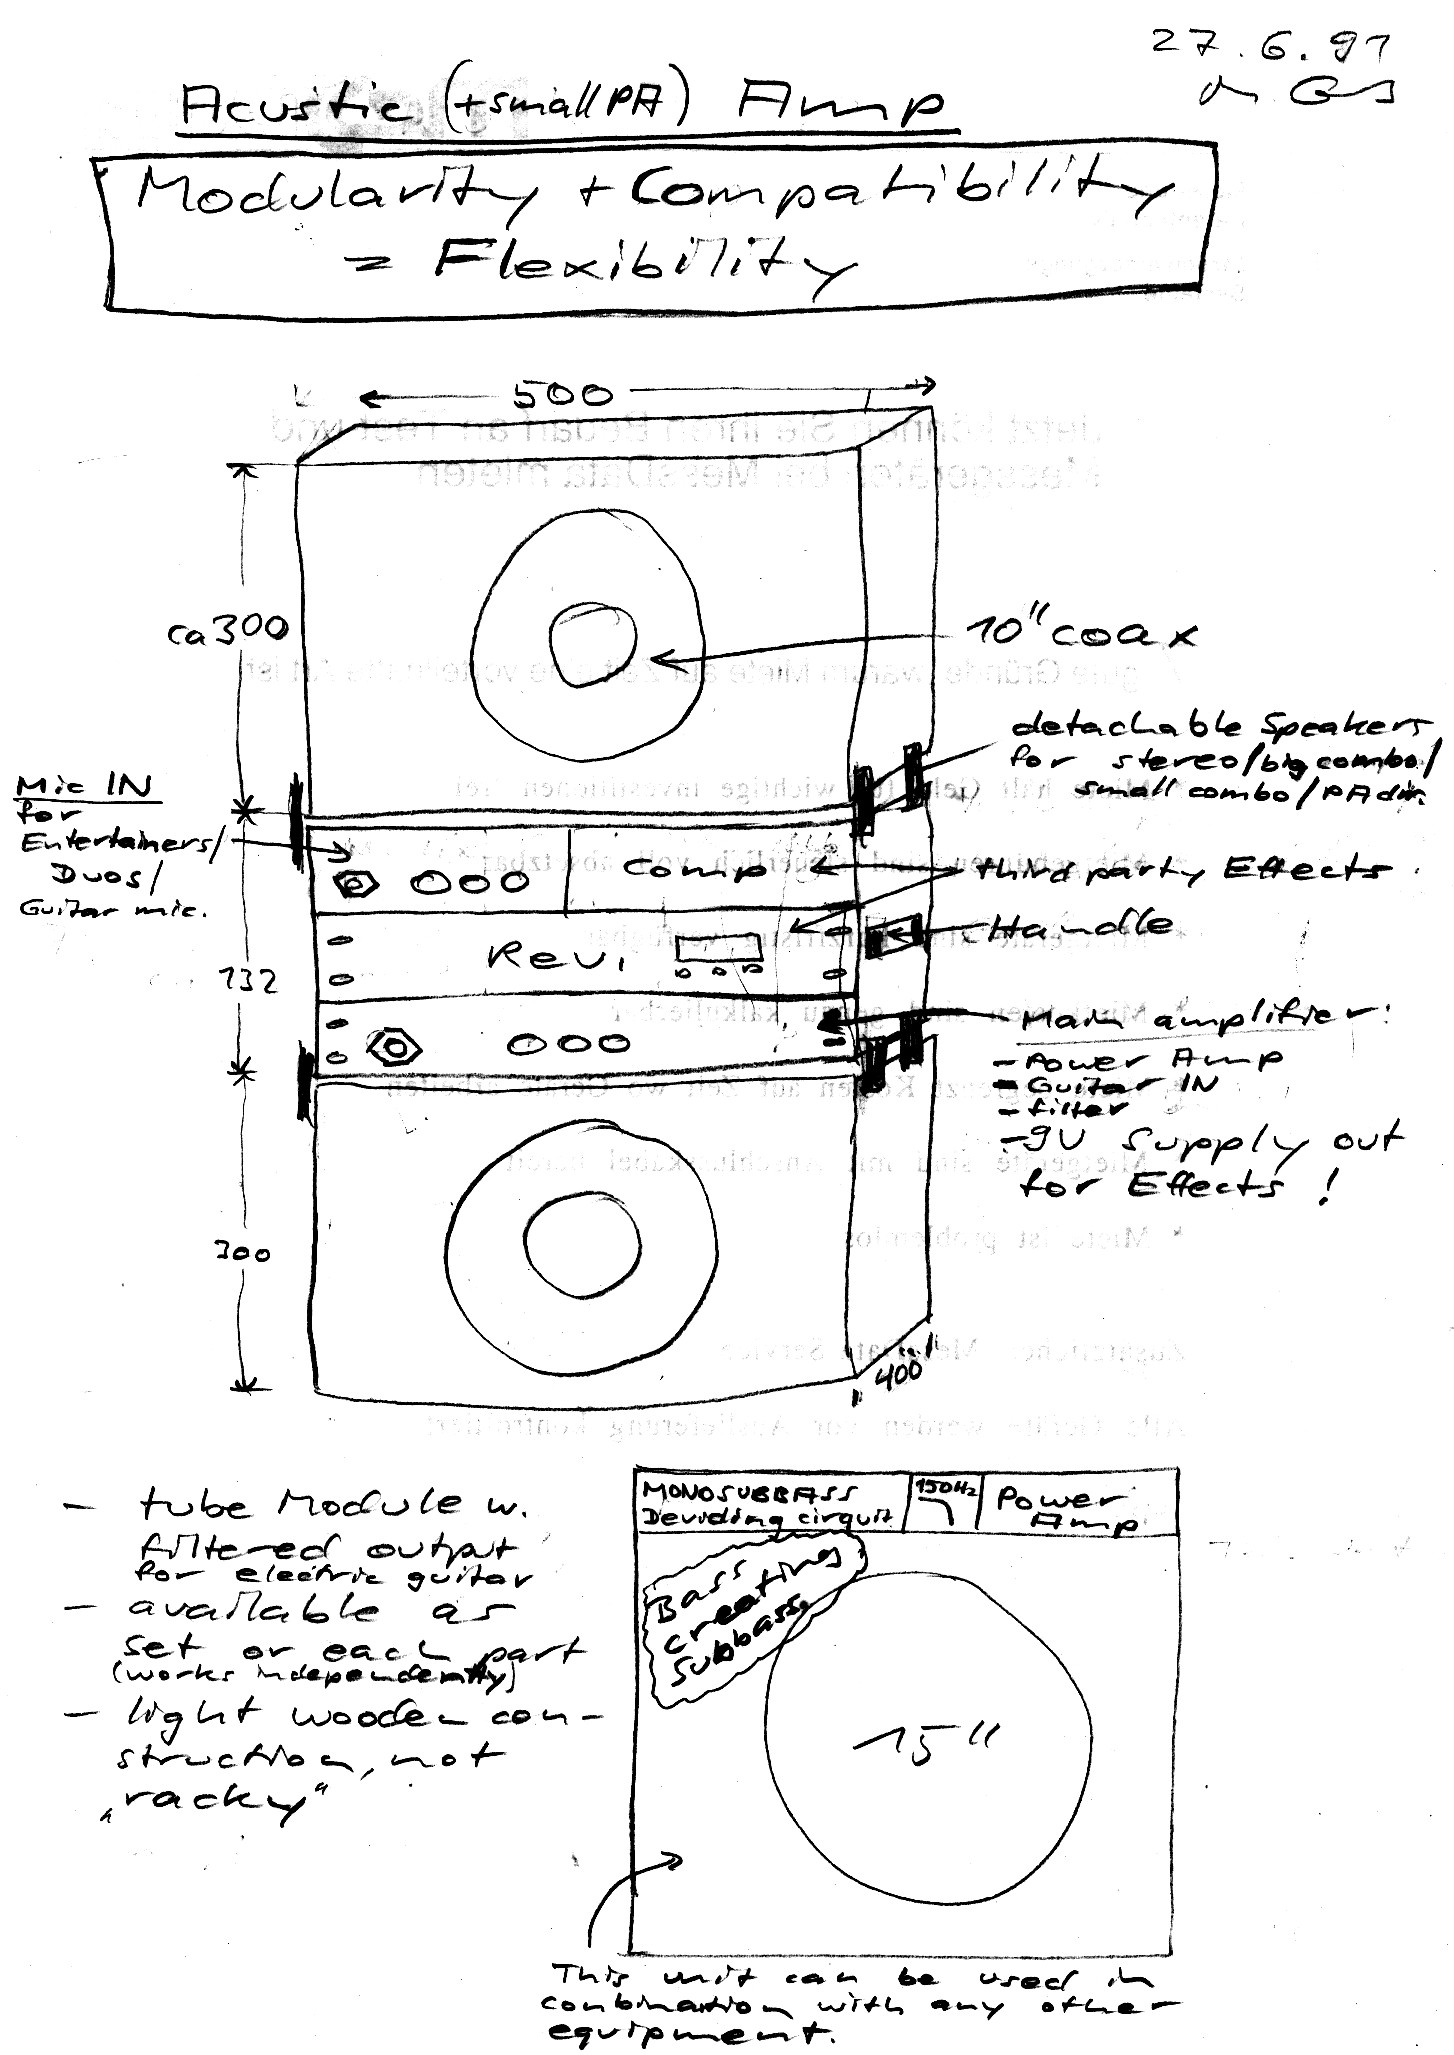 27.6.91
Acustic (+small PA) Amp
Modularity + Compatibility
= Flexibility
500
ca 300
10" coax
detachable Speakers
for stereo/big combo/
small combo/PA
Mic IN
for
Entertainers/
Duos/
Guitar mic.
Comp
third party Effects
Handle
Rev.
132
Main amplifier:
- Power Amp
- Guitar IN
- filter
- 9V Supply out
for Effects !
300
400
- tube Module w.
filtered output
for electric guitar
- available as
set or each part
(works independently)
- light wooden con-
struction, not
„racky"
MONOSUBBASS
Deviding cirquit
150Hz
Power
Amp
Bass
creating
subbass.
15"
This unit can be used in
conbination with any other
equipment.